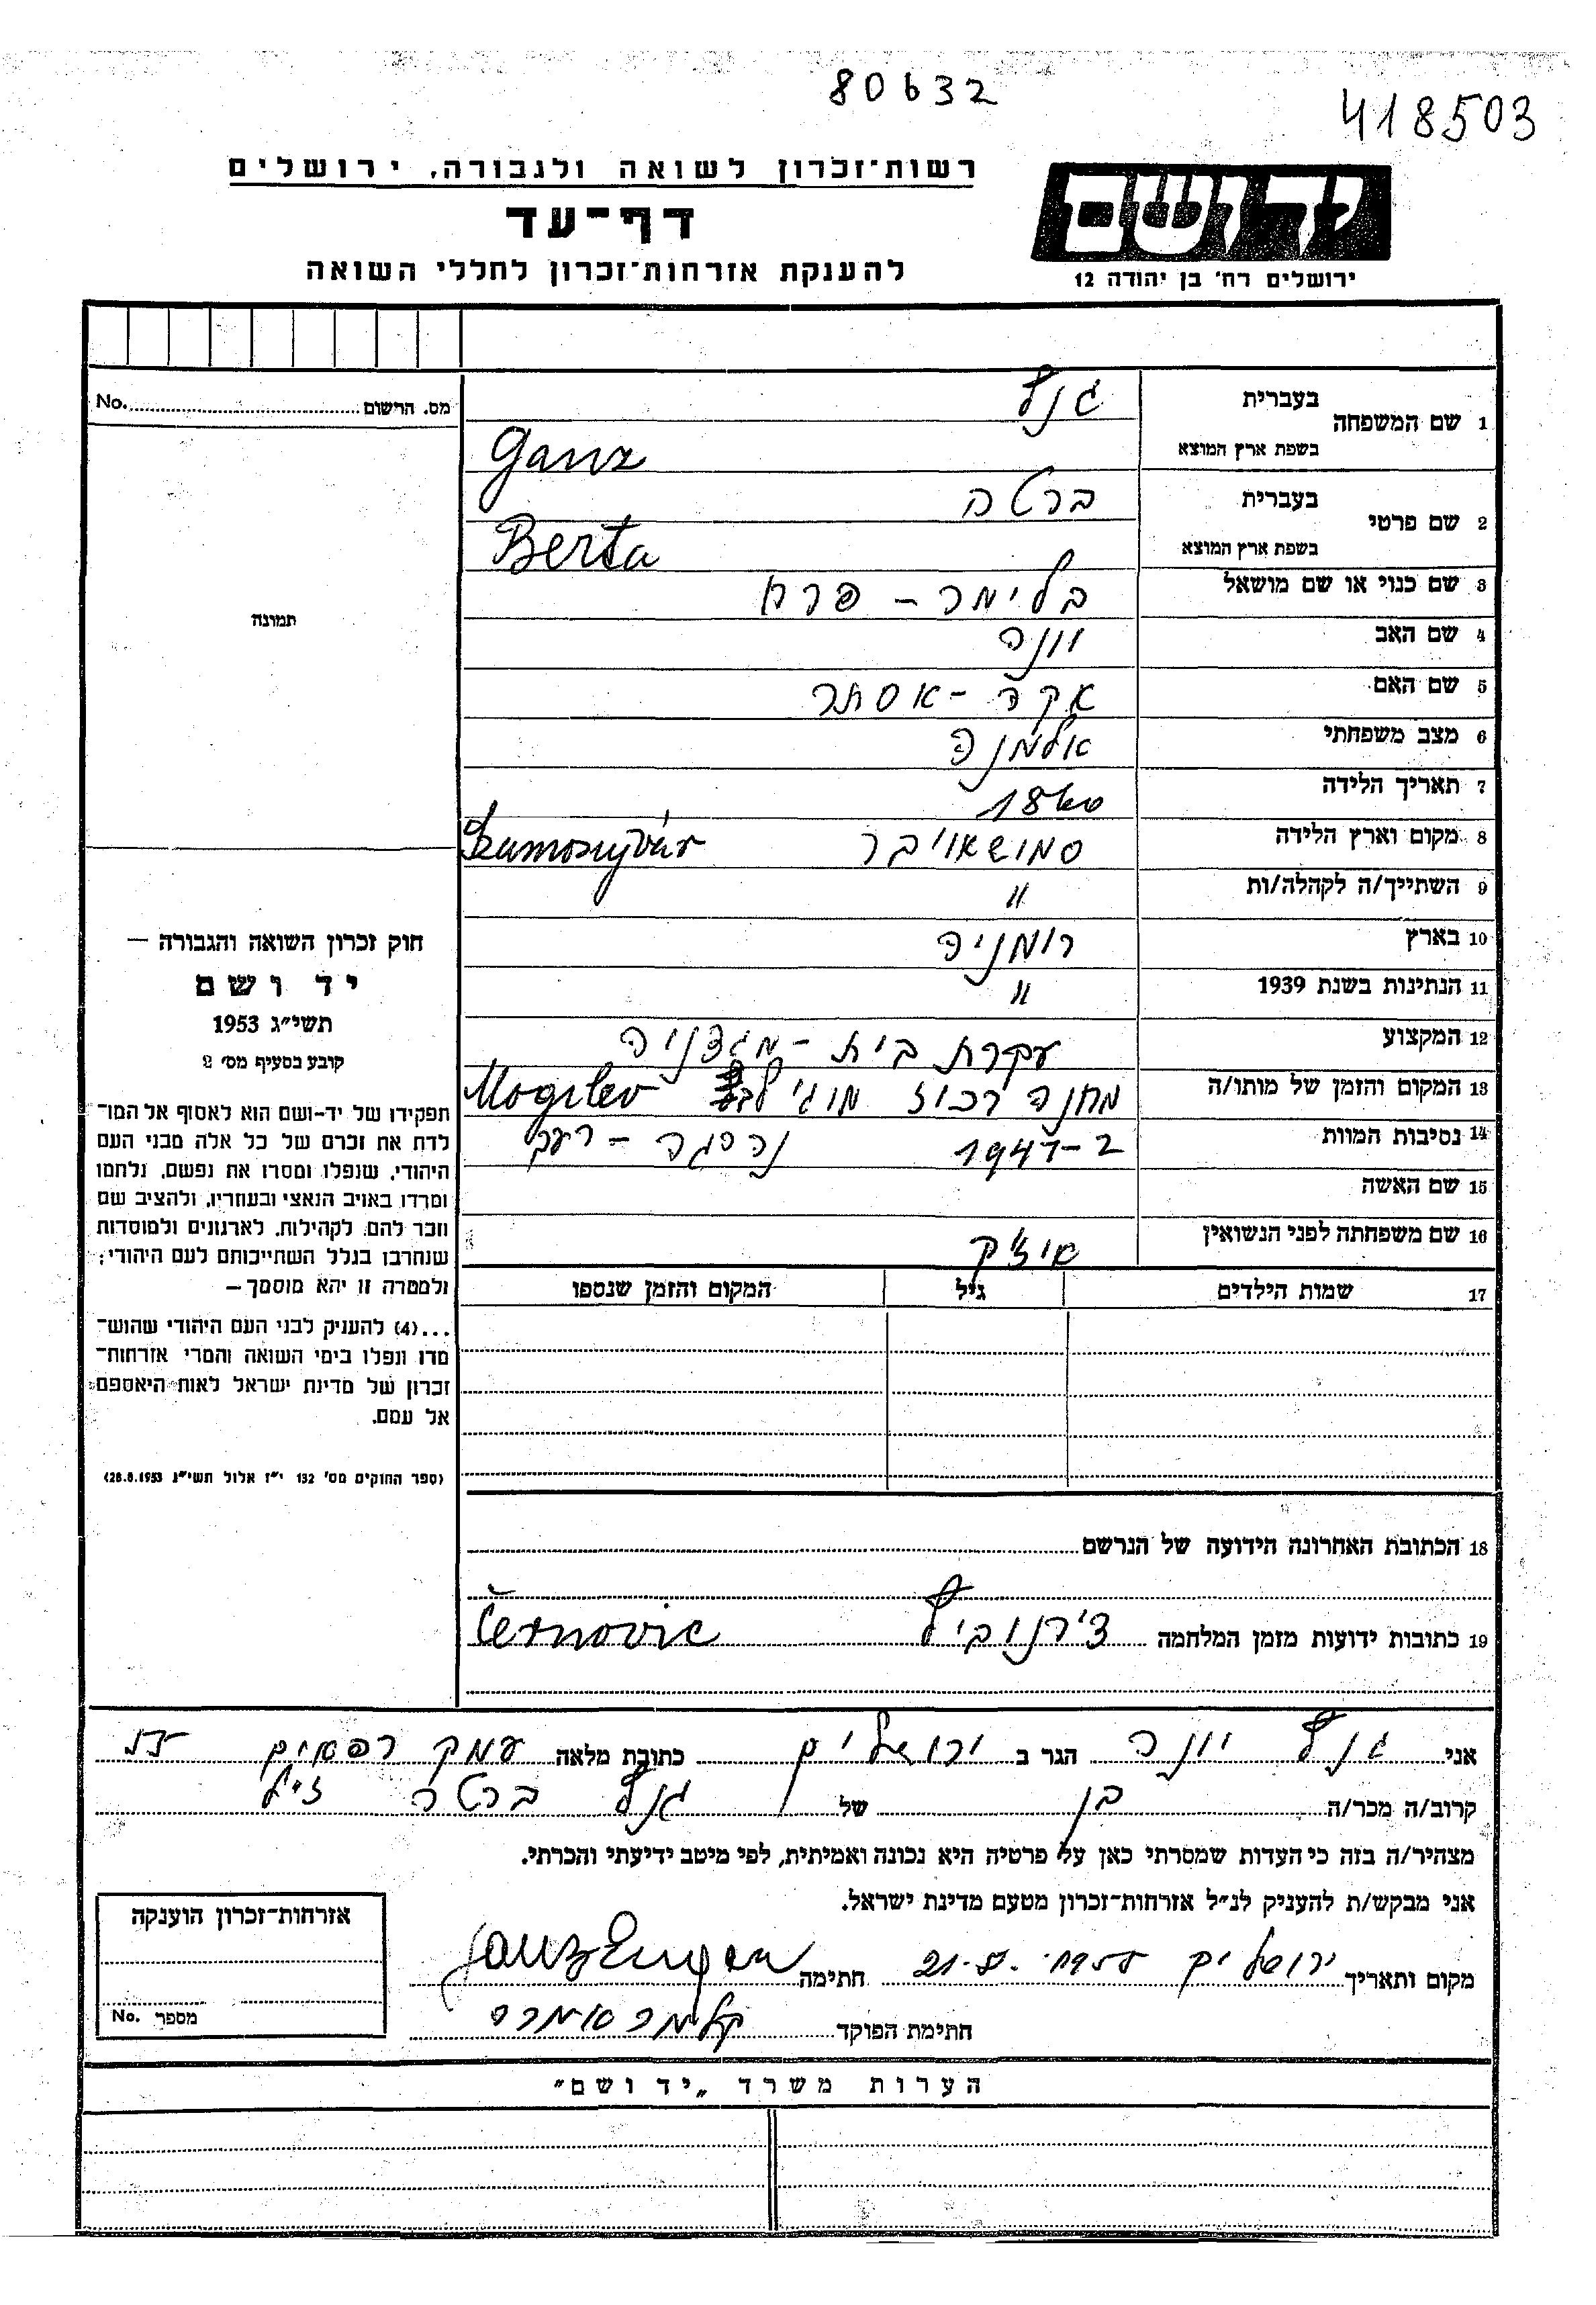 80632
418503
רשות־זכרון לשואה ולגבורה, ירושלים
יד ושם
דף־עד
להענקת אזרחות־זכרון לחללי השואה
ירושלים רח' בן יהודה 12
מס. הרשום No.
1 שם המשפחה בעברית גנץ
בשפת ארץ המוצא Ganz
2 שם פרטי בעברית ברטה
בשפת ארץ המוצא Berta
3 שם כנוי או שם מושאל בלימה - פרח
4 שם האב יונה
5 שם האם - אסתר
6 מצב משפחתי אלמנה
7 תאריך הלידה
8 מקום וארץ הלידה סמושאויבר Szamosujvár
9 השתייך/ה לקהלה/ות "
10 בארץ רומניה
11 הנתינות בשנת 1939 "
12 המקצוע עקרת בית -
13 המקום והזמן של מותו/ה מחנה רכוז Mogilev
14 נסיבות המוות נהרגה - רעב
15 שם האשה
16 שם משפחתה לפני הנשואין איזק
17 שמות הילדים גיל המקום והזמן שנספו
18 הכתובת האחרונה הידועה של הנרשם
19 כתובות ידועות מזמן המלחמה Černovic
תמונה
חוק זכרון השואה והגבורה –
יד ושם
תשי"ג 1953
קובע בסעיף מס' 2
תפקידו של יד-ושם הוא לאסוף אל המו־
לדת את זכרם של כל אלה מבני העם
היהודי, שנפלו ומסרו את נפשם, נלחמו
ומרדו באויב הנאצי ובעוזריו, ולהציב שם
וזכר להם, לקהילות, לארגונים ולמוסדות
שנחרבו בגלל השתייכותם לעם היהודי;
ולמטרה זו יהא מוסמך –
...(4) להעניק לבני העם היהודי שהוש־
מדו ונפלו בימי השואה והמרי אזרחות־
זכרון של מדינת ישראל לאות היאספם
אל עמם.
(ספר החוקים מס' 132 י"ז אלול תשי"ג 28.8.1953)
אני גנץ יונה הגר ב ירושלים כתובת מלאה עמק רפאים
קרוב/ה מכר/ה בן של גנץ ברטה ז"ל
מצהיר/ה בזה כי העדות שמסרתי כאן על פרטיה היא נכונה ואמיתית, לפי מיטב ידיעתי והכרתי.
אני מבקש/ת להעניק לנ"ל אזרחות־זכרון מטעם מדינת ישראל.
מקום ותאריך ירושלים 21.5.1955 חתימה Ganz Eugen
חתימת הפוקד
אזרחות־זכרון הוענקה
מספר No.
הערות משרד „יד ושם"